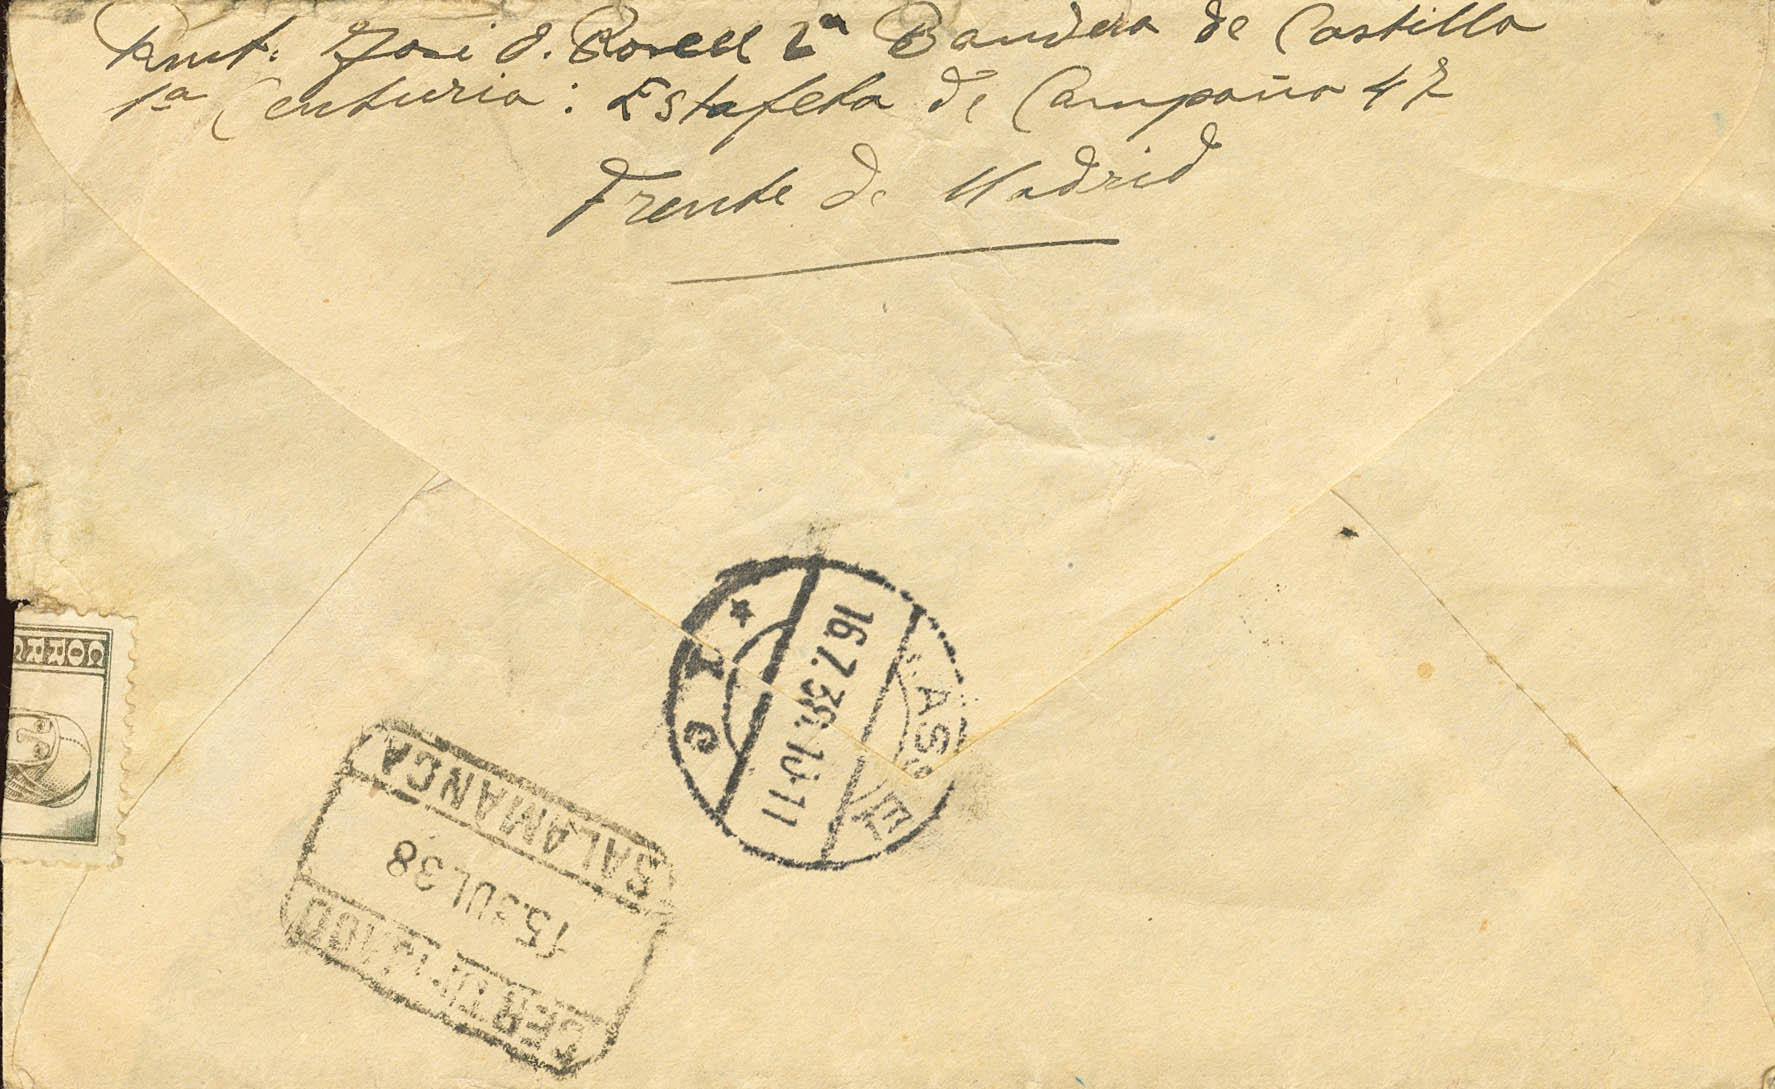 Rmt. José d. Borell 2ª Bandera de Castilla
1ª Centuria: Estafeta de Campaña 47
Frente de Madrid
16.7.38.10-11
CORR
SALAMANCA
15.JUL 38
CERTIFICADO